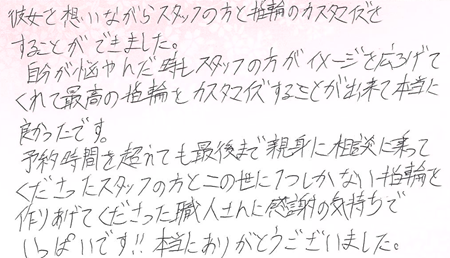 彼女を想いながらスタッフの方と指輪のカスタマイズを
することができました。
自分が悩やんだ時もスタッフの方がイメージを広げて
くれて最高の指輪をカスタマイズすることが出来て本当に
良かったです。
予約時間を超えても最後まで親身に相談に乗って
くださったスタッフの方とこの世に1つしかない指輪を
作りあげてくださった職人さんに感謝の気持ちで
いっぱいです!!本当にありがとうございました。